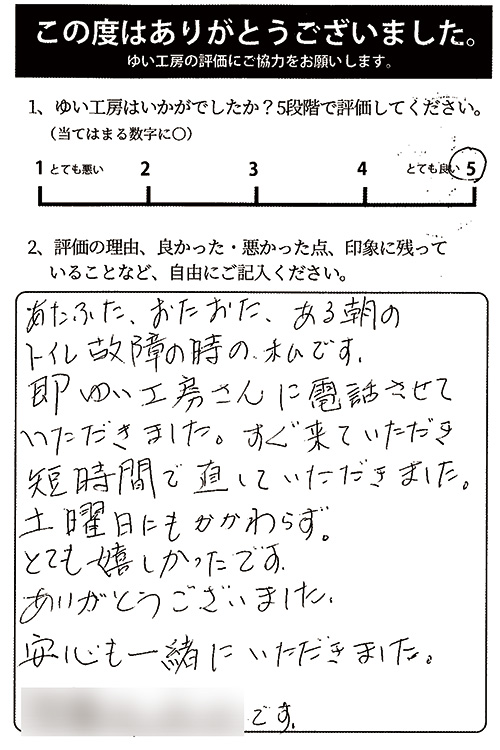 この度はありがとうございました。
ゆい工房の評価にご協力をお願いします。
1、ゆい工房はいかがでしたか？5段階で評価してください。
（当てはまる数字に○）
1 とても悪い 2 3 4 とても良い 5
2、評価の理由、良かった・悪かった点、印象に残って
いることなど、自由にご記入ください。
あたふた、おたおた、ある朝の
トイレ故障の時の私です。
即ゆい工房さんに電話させて
いただきました。すぐ来ていただき
短時間で直していただきました。
土曜日にもかかわらず。
とても嬉しかったです。
ありがとうございました。
安心も一緒にいただきました。
です。